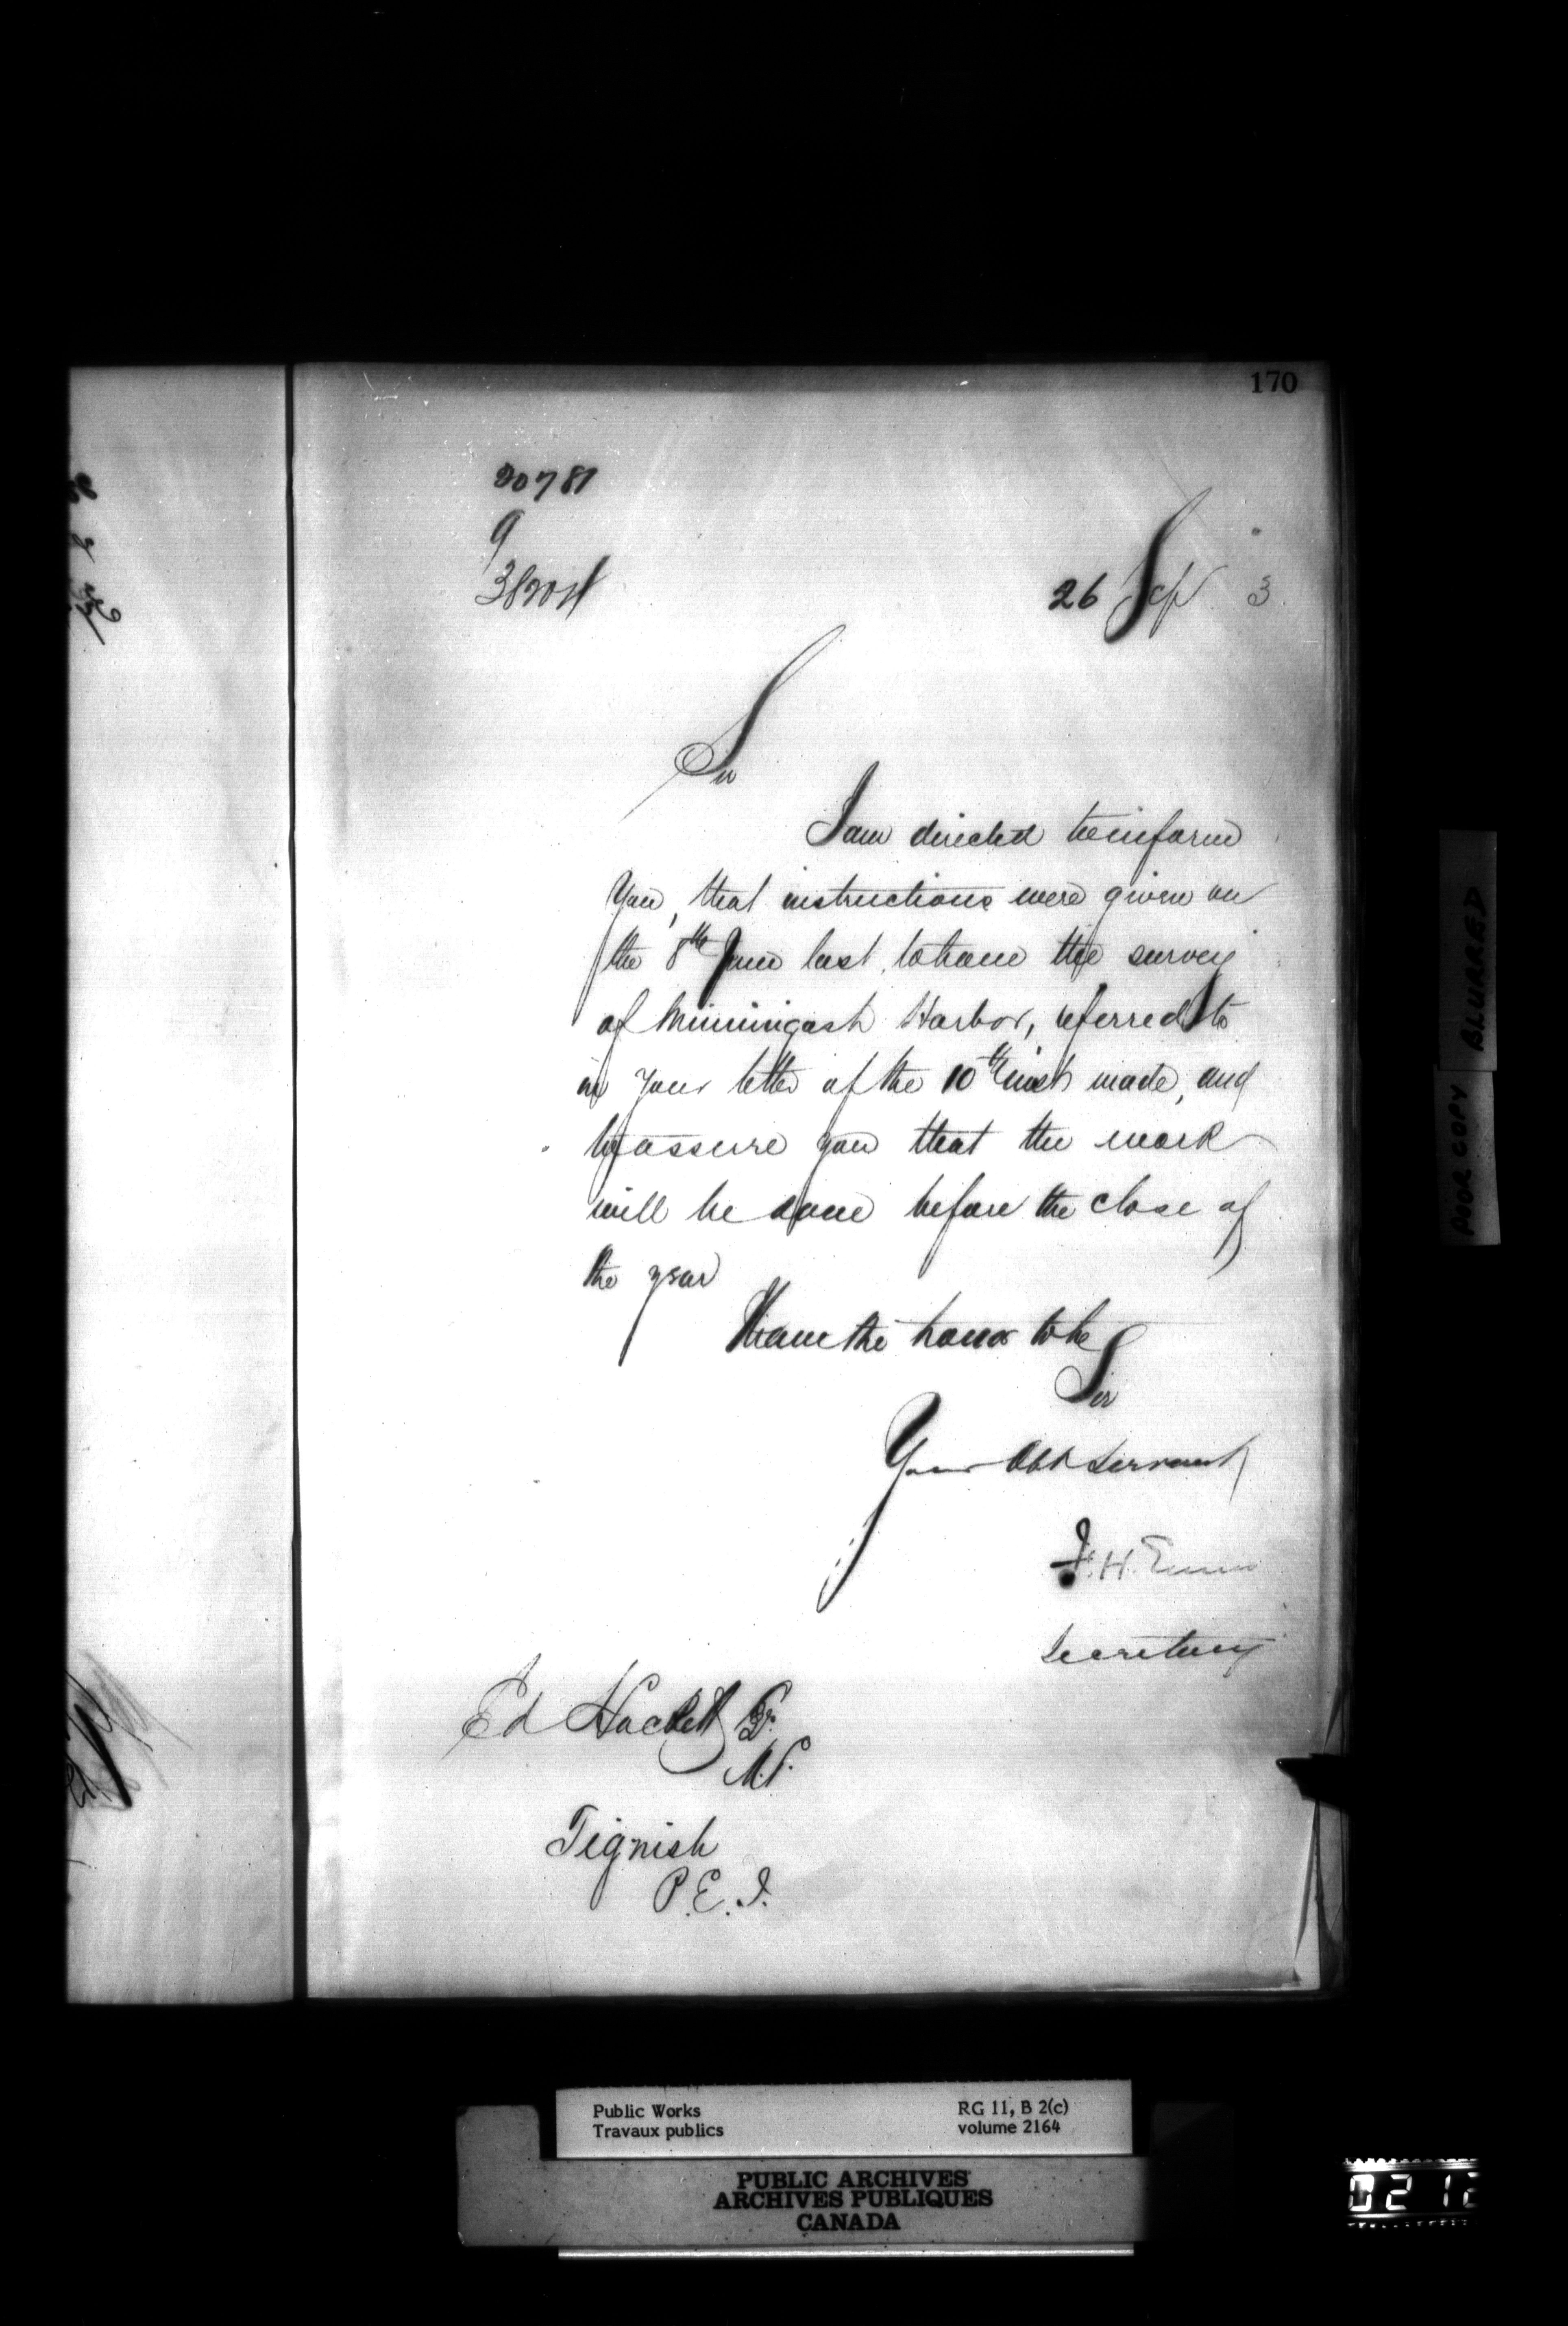 170
20781
9
26 Sep 3
Sir
I am directed to inform
You, that instructions were given on
the 8th June last, to have the survey
of Miminigash Harbor, referred to
in your letter of the 10th inst made, and
to assure you that the work
will be done before the close of
the year
I have the honor to be
Sir
Your Obt Servant
F. H. Ennis
Secretary
Ed Hackett Esqr.
M.P.
Tignish
P.E.I.
POOR COPY BLURRED
Public Works
Travaux publics
RG 11, B 2(c)
volume 2164
PUBLIC ARCHIVES
ARCHIVES PUBLIQUES
CANADA
0212